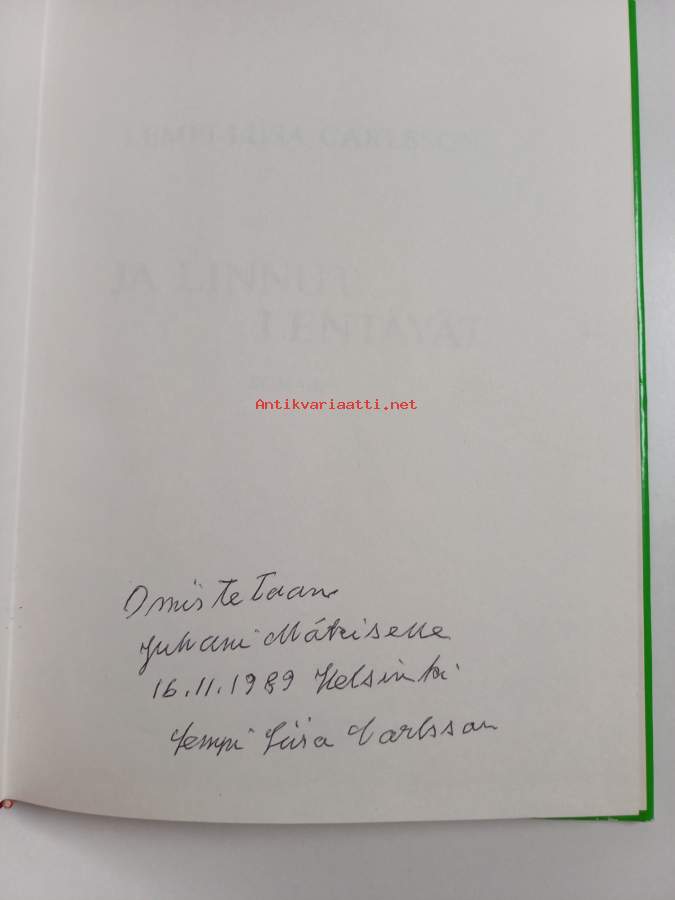 LEMPI-LIISA CARLSSON
JA LINNUT
LENTÄVÄT
Antikvariaatti.net
Omistetaan
Juhani Mátriselle
16.11.1989 Helsinki
Lempi Liisa Carlsson